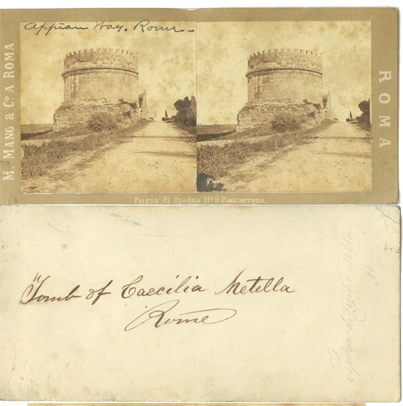 Appian Way. Rome
M. MANG & Cº. A ROMA
ROMA
Piazza di Spagna Nº 9 Pianterreno.
"Tomb of Caecilia Metella
Rome